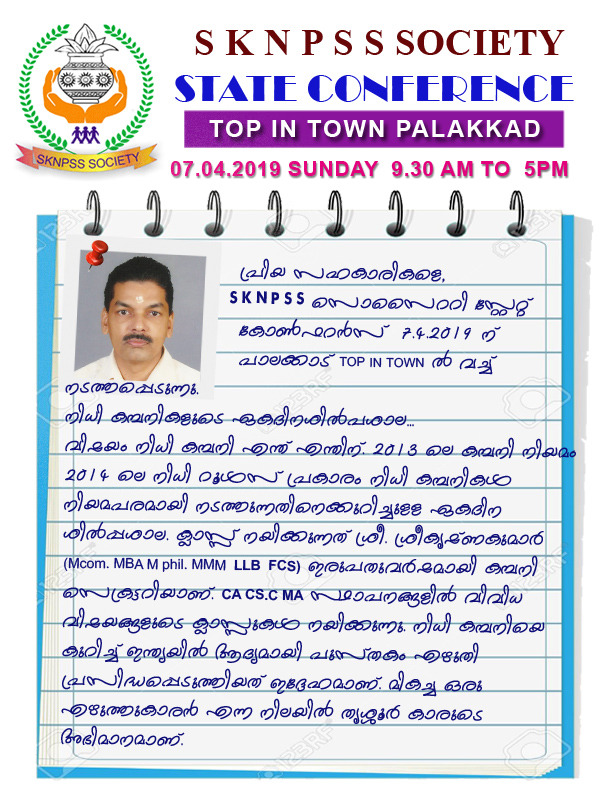 S K N P S S SOCIETY
STATE CONFERENCE
TOP IN TOWN PALAKKAD
07.04.2019 SUNDAY 9.30 AM TO 5PM
SKNPSS SOCIETY
പ്രിയ സഹകാരികളെ,
SKNPSS സൊസൈററി സ്റ്റേറ്റ്
കോൺഫറൻസ് 7.4.2019 ന്
പാലക്കാട് TOP IN TOWN ൽ വച്ച്
നടത്തപ്പെടുന്നു.
നിധി കമ്പനികളുടെ ഏകദിനശിൽപശാല...
വിഷയം നിധി കമ്പനി എന്ത് എന്തിന്. 2013 ലെ കമ്പനി നിയമം
2014 ലെ നിധി റൂൾസ് പ്രകാരം നിധി കമ്പനികൾ
നിയമപരമായി നടത്തുന്നതിനെക്കുറിച്ചുളള ഏകദിന
ശിൽപ്പശാല. ക്ലാസ്സ് നയിക്കുന്നത് ശ്രീ. ശ്രീകൃഷ്ണകുമാർ
(Mcom. MBA M phil. MMM LLB FCS) ഇരുപതുവർഷമായി കമ്പനി
സെക്രട്ടറിയാണ്. CA CS.C MA സ്ഥാപനങ്ങളിൽ വിവിധ
വിഷയങ്ങളുടെ ക്ലാസ്സുകൾ നയിക്കുന്നു. നിധി കമ്പനിയെ
കുറിച്ച് ഇന്ത്യയിൽ ആദ്യമായി പുസ്തകം എഴുതി
പ്രസിദ്ധപ്പെടുത്തിയത് ഇദ്ദേഹമാണ്. മികച്ച ഒരു
എഴുത്തുകാരൻ എന്ന നിലയിൽ തൃശ്ശൂർ കാരുടെ
അഭിമാനമാണ്.